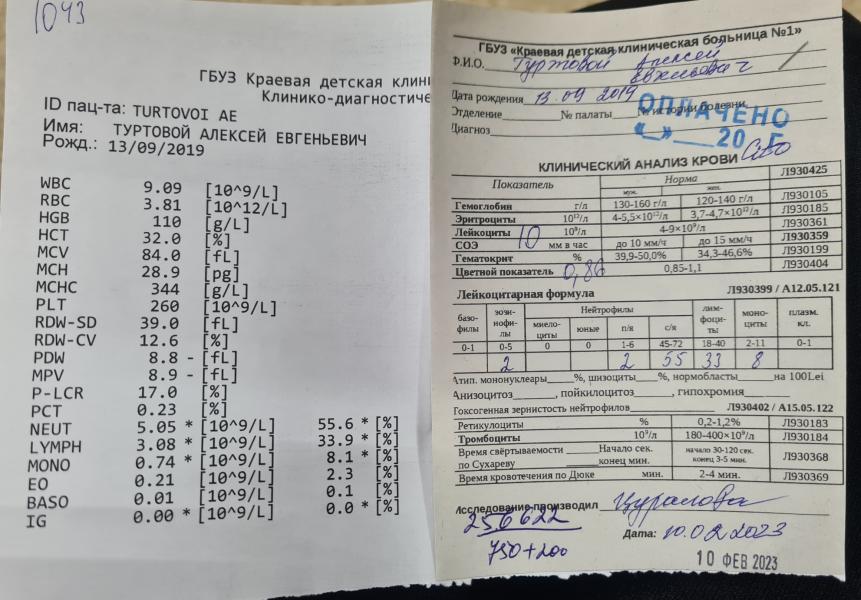 1043
ГБУЗ Краевая детская клини
Клинико-диагностиче
ID пац-та: TURTOVOI AE
Имя: ТУРТОВОЙ АЛЕКСЕЙ ЕВГЕНЬЕВИЧ
Рожд.: 13/09/2019
WBC 9.09 [10^9/L]
RBC 3.81 [10^12/L]
HGB 110 [g/L]
HCT 32.0 [%]
MCV 84.0 [fL]
MCH 28.9 [pg]
MCHC 344 [g/L]
PLT 260 [10^9/L]
RDW-SD 39.0 [fL]
RDW-CV 12.6 [%]
PDW 8.8 - [fL]
MPV 8.9 - [fL]
P-LCR 17.0 [%]
PCT 0.23 [%]
NEUT 5.05 * [10^9/L] 55.6 * [%]
LYMPH 3.08 * [10^9/L] 33.9 * [%]
MONO 0.74 * [10^9/L] 8.1 * [%]
EO 0.21 [10^9/L] 2.3 [%]
BASO 0.01 [10^9/L] 0.1 [%]
IG 0.00 * [10^9/L] 0.0 * [%]
ГБУЗ «Краевая детская клиническая больница №1»
Ф.И.О. Туртовой Алексей
Евгеньевич
Дата рождения 13.09 2019
Отделение № палаты № истории болезни
ОПЛАЧЕНО
Диагноз
« » 20 Г
Cito
КЛИНИЧЕСКИЙ АНАЛИЗ КРОВИ Л930425
Показатель Норма
муж. жен.
Гемоглобин г/л 130-160 г/л 120-140 г/л Л930105
Эритроциты 10¹²/л 4-5,5х10¹²/л 3,7-4,7х10¹²/л Л930185
Лейкоциты 10⁹/л 4-9х10⁹/л Л930361
СОЭ 10 мм в час до 10 мм/ч до 15 мм/ч Л930359
Гематокрит % 39,9-50,0% 34,3-46,6% Л930199
Цветной показатель 0,86 0,85-1,1 Л930404
Лейкоцитарная формула Л930399 / А12.05.121
базофилы эозинофилы Нейтрофилы лимфоциты моноциты плазм. кл.
миелоциты юные п/я с/я
0-1 0-5 0 0 1-6 45-72 18-40 2-11 0-1
2 2 55 33 8
Атип. мононуклеары %, шизоциты %, нормобласты на 100Lei
Анизоцитоз , пойкилоцитоз , гипохромия
Токсогенная зернистость нейтрофилов Л930402 / А15.05.122
Ретикулоциты % 0,2-1,2% Л930183
Тромбоциты 10⁹/л 180-400х10⁹/л Л930184
Время свёртываемости Начало сек. начало 30-120 сек.
по Сухареву конец мин. конец 3-5 мин. Л930368
Время кровотечения по Дюке мин. 2-4 мин. Л930369
Исследование производил
256622
Дата: 10.02 2023
750+200
10 ФЕВ 2023